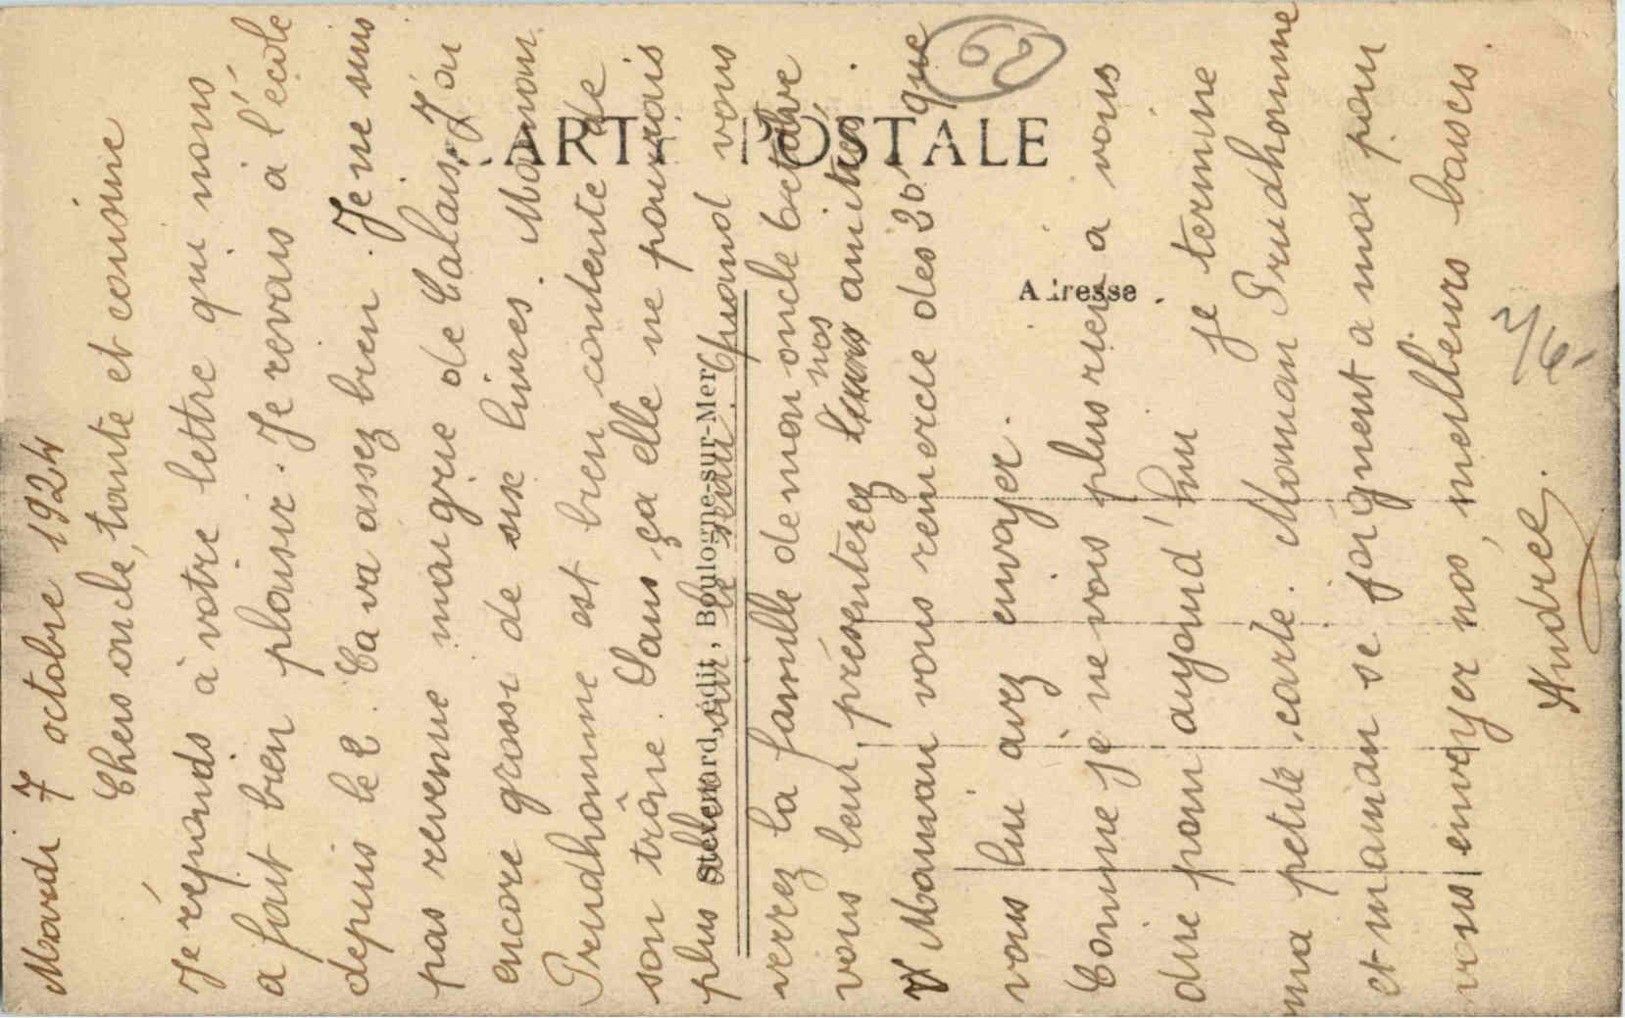 Mardi 7 octobre 1924
Chers oncle, tante et cousine
Je réponds à votre lettre qui nous
a fait bien plaisir. Je revais à l'école
depuis le 2. Ca va assez bien. Je ne suis
pas revenue maigrie de Calais. J'ai
encore grossi de six livres. Maman
Prudhomme est bien contente de
son trône. Sans ça elle ne pourrais
plus aller sur le seau. Quand vous
verrez la famille de mon oncle
vous leur présenterez nos amitiés.
Maman vous remercie des 20 que
vous lui avez envoyer.
Comme je ne vois plus rien a vous
dire pour aujourd'hui je termine
ma petite carte. Maman Prudhomme
et maman se joignent a moi pour
vous envoyer nos meilleurs baisers.
Andrée.
CARTE POSTALE
Adresse
Stévenard, édit., Boulogne-sur-Mer
69
2/6-